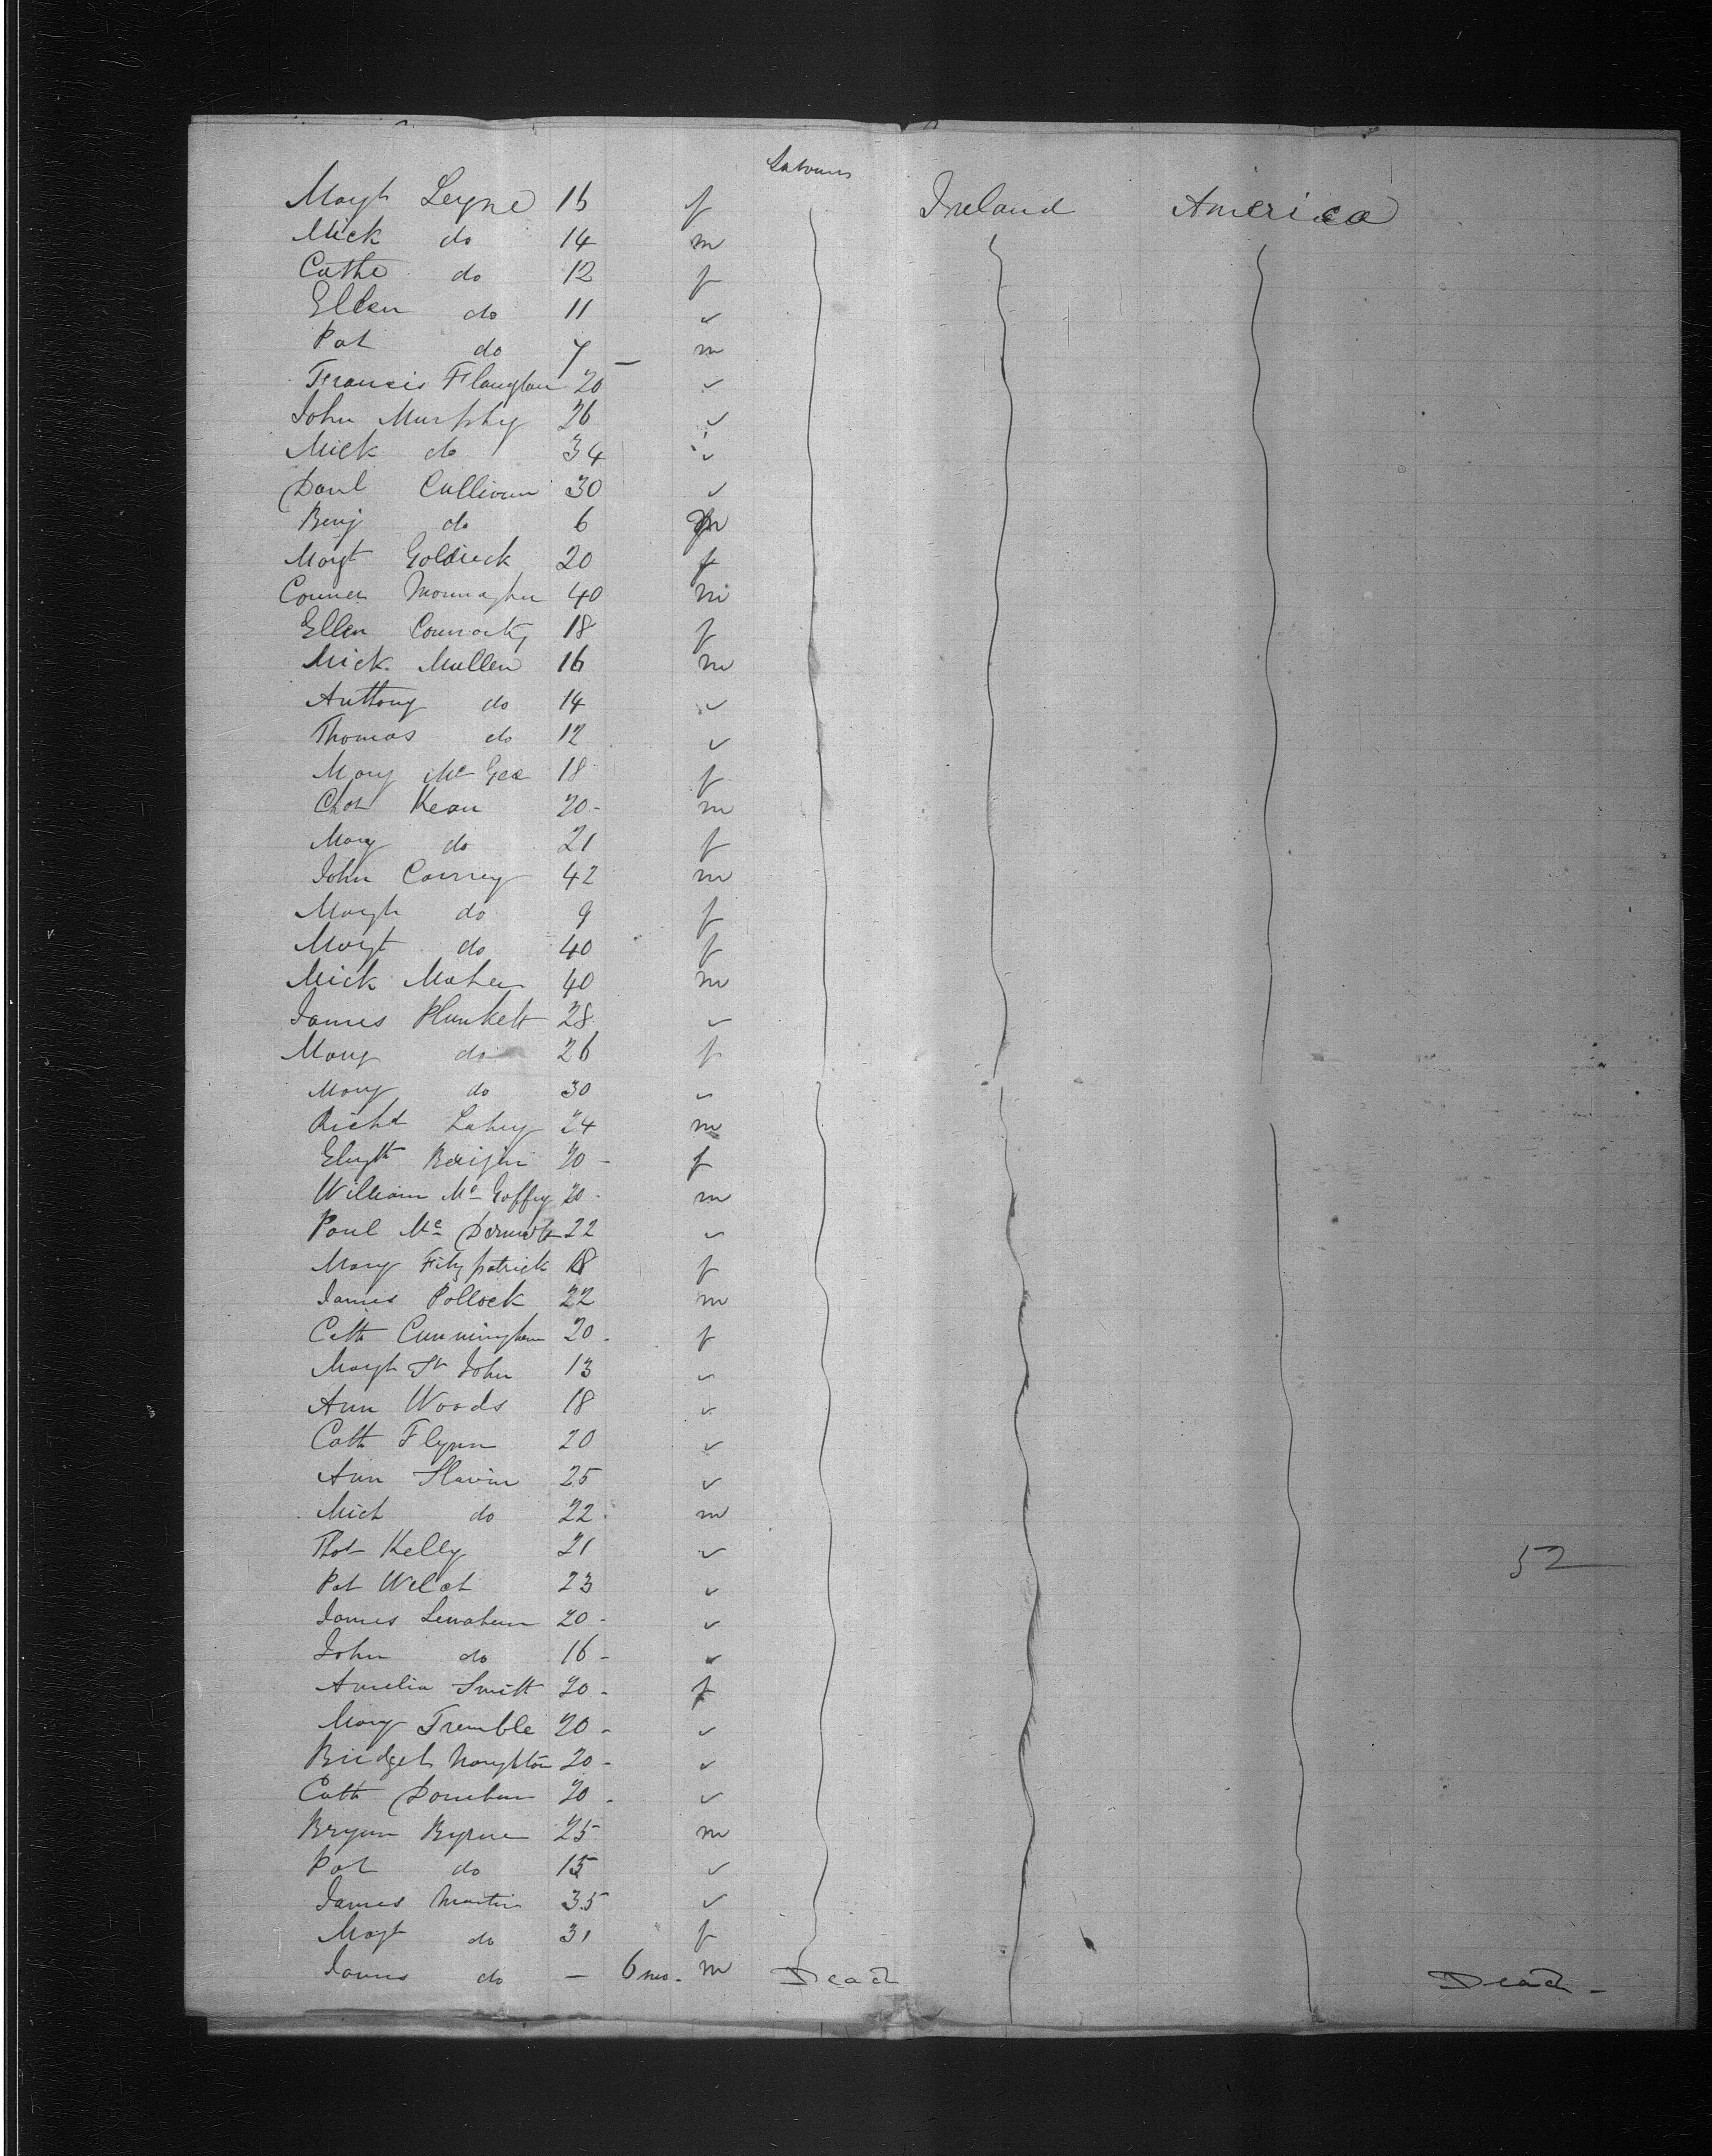 Labourers
Margt Leyne 16 f Ireland America
Mick do 14 m
Cathe do 12 f
Ellen do 11 ✓
Pat do 7 m
Francis Flanghan 20 ✓
John Murphy 26 ✓
Mick do 34 ✓
Danl Cullivan 30 ✓
Benj do 6 m
Margt Goldrick 20 f
Conner Monnaghen 40 m
Ellen 18 f
Mick Mullen 16 m
Anthony do 14 ✓
Thomas do 12 ✓
Mary Mc Gee 18 f
Kean 20 - m
Mary do 21 f
John 42 m
Margt do 9 f
Margt do 40 f
Mick Maher 40 m
James Plunkett 28 ✓
Mary do 26 f
Mary do 30 ✓
Richd Lahey 24 m
20 - f
William Mc Goffey 20 - m
Paul Mc Dermott 22 ✓
Mary Fitzpatrick 18 f
James Pollock 22 m
Cath Cunningham 20 - f
Margt St John 13 ✓
Ann Woods 18 ✓
Cath Flynn 20 ✓
Ann Slavin 25 ✓
Mich do 22 m
Thos Kelly 21 ✓
52
Pat Welch 23 ✓
James Lenahan 20 - ✓
John do 16 - ✓
Amelia Smith 20 - f
Mary Tremble 20 - ✓
Bridget Naughton 20 - ✓
Cath Donehun 20 - ✓
Bryan Byrne 25 m
Pat do 15 ✓
James Martin 35 ✓
Margt do 31 f
James do — 6 mo. m Dead Dead -